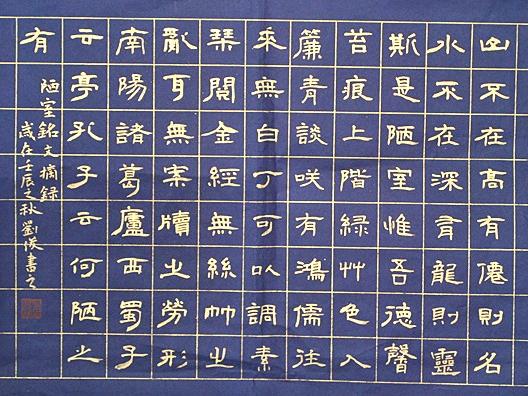 山不在高有僊則名
水不在深有龍則靈
斯是陋室惟吾德馨
苔痕上階緑艸色入
簾青談咲有鴻儒往
來無白丁可以調素
琹閱金經無絲竹之
亂耳無案牘之勞形
南陽諸葛廬西蜀子
云亭孔子云何陋之
有
陋室銘文摘録
歲在壬辰之秋劉俊書之